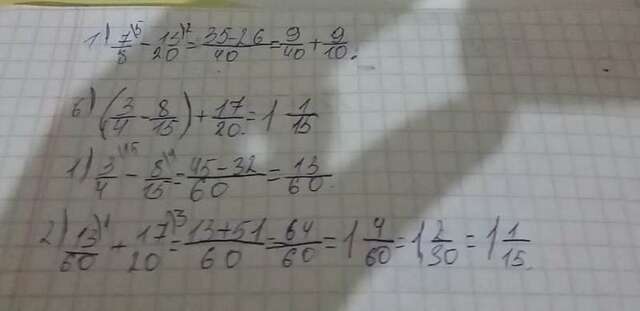 1) 7/8 \5 - 13/20 \2 = 35-26/40 = 9/40 + 9/10.
б) (3/4 - 8/15) + 17/20 = 1 1/15
1) 3/4 \15 - 8/15 \4 = 45-32/60 = 13/60.
2) 13/60 \1 + 17/20 \3 = 13+51/60 = 64/60 = 1 4/60 = 1 2/30 = 1 1/15.